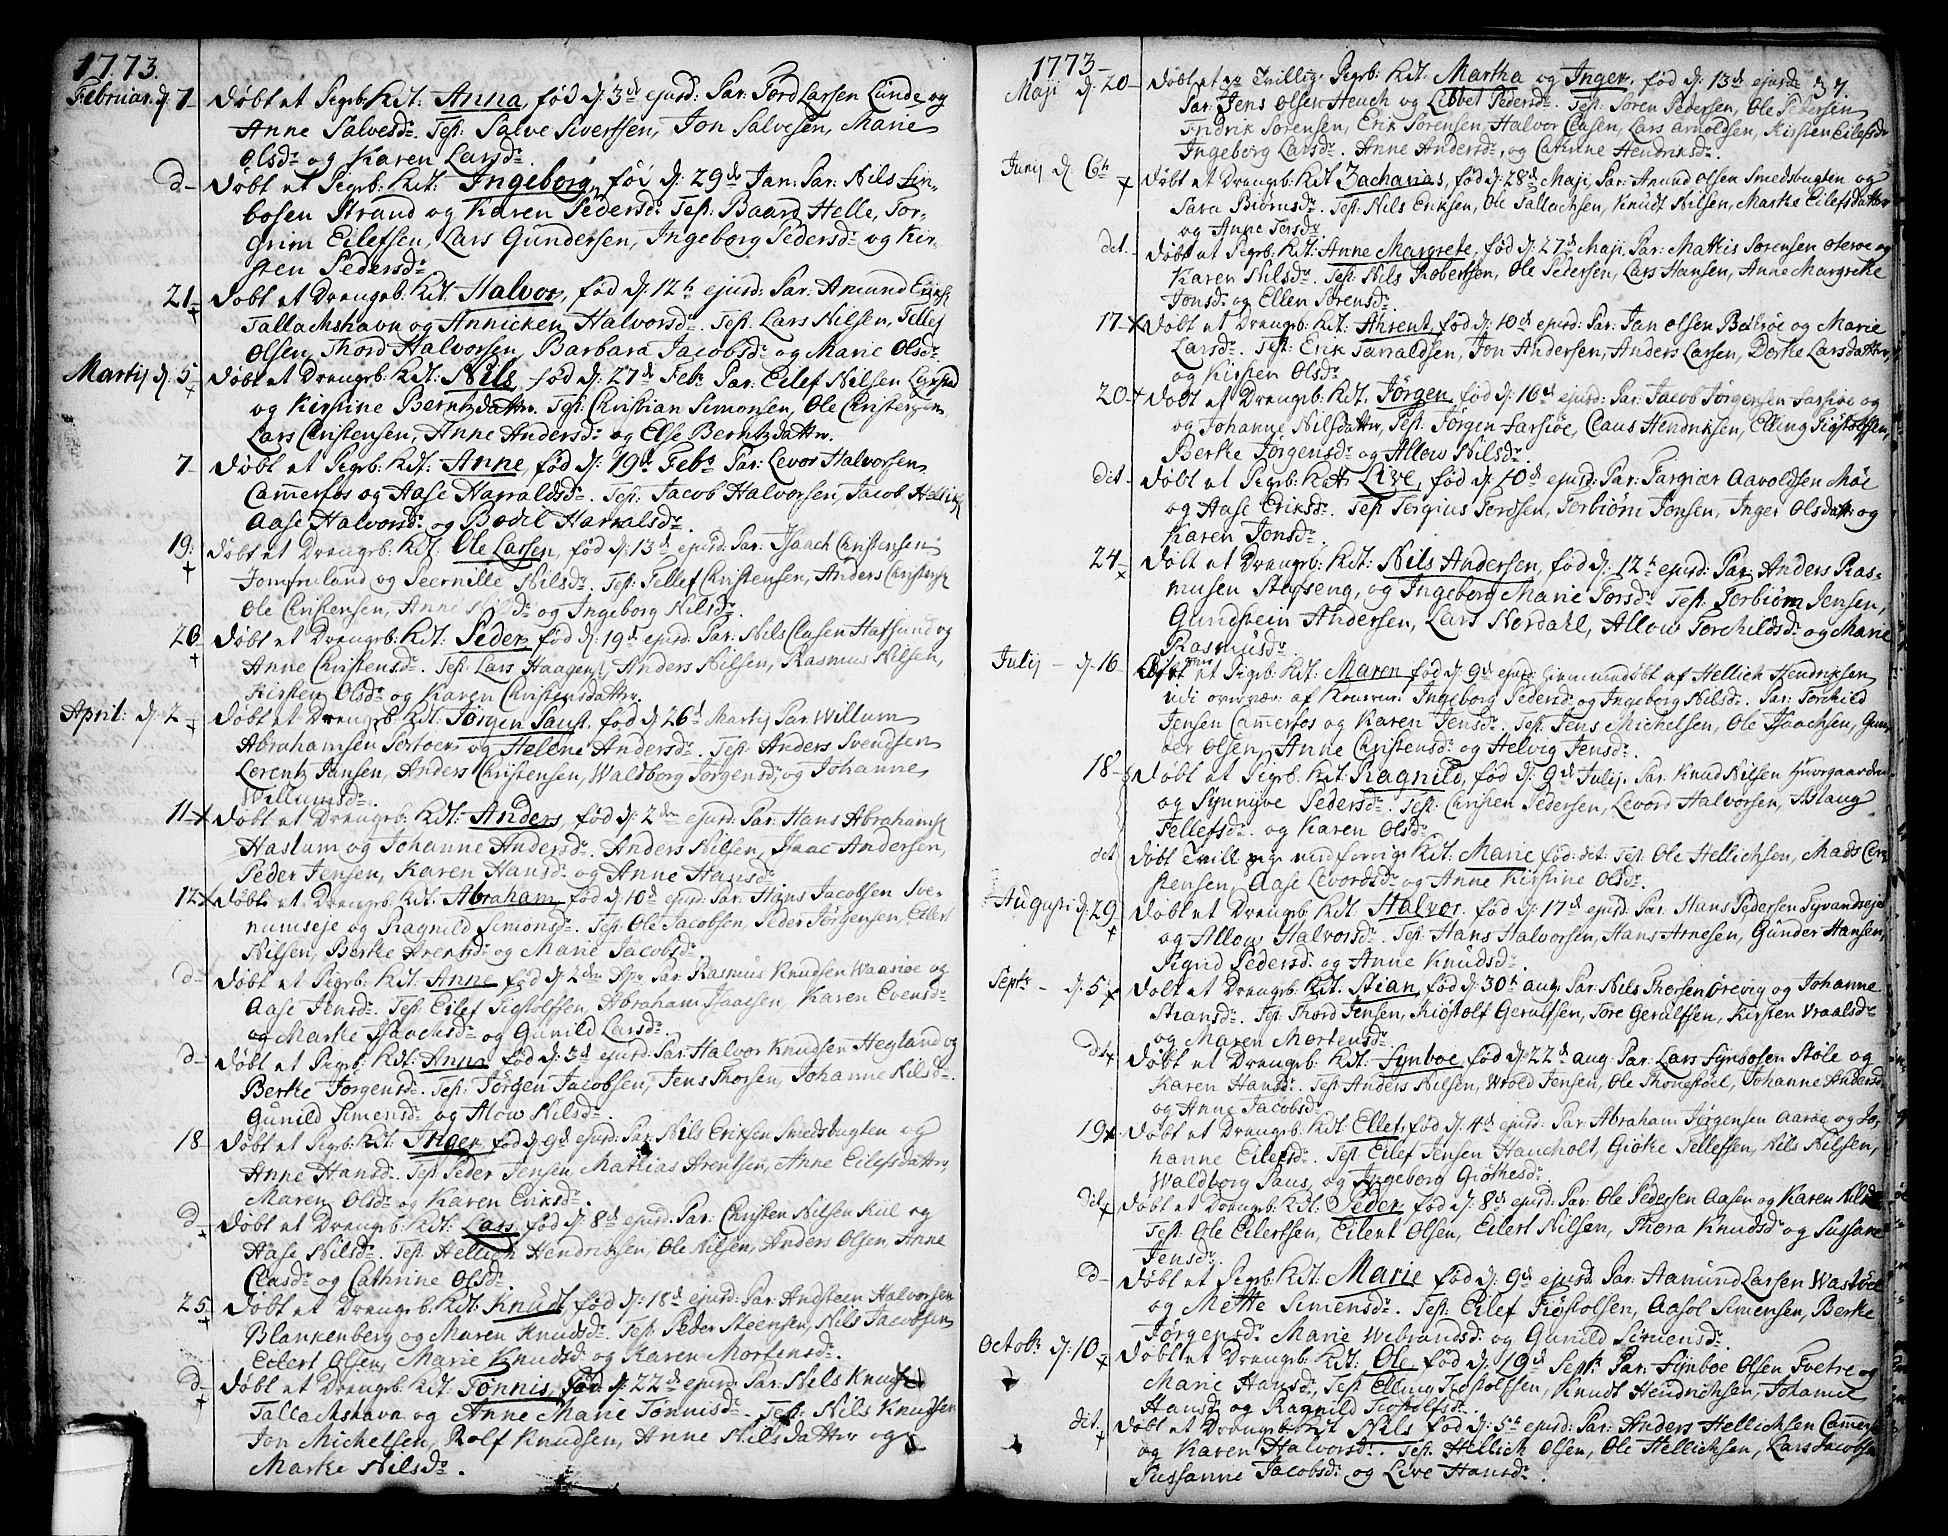 1773.
Februar. d. 7 - Døbt et Pigeb: Kdt: Anna, fød d: 3de ejusd: Par: Tord Larsen Lunde og
Anne Salvesdr. Test: Salve Sivertsen, Jon Salvesen, Marie
Olsdr og Karen Larsdr.
d - Døbt et Pigeb: Kdt: Ingeborg, fød d: 29de Jan: Par: Nils Sin-
bosen Strand og Karen Pedersdr Test: Baard Helle, Tor-
grim Eilefsen, Lars Gundersen, Ingeborg Pedersdr og Kir-
sten Pedersdr
21 - Døbt et Drengeb: Kdt: Halvor, fød d: 12te ejusd: Par: Amund Eriks:
Tallachshavn og Annicken Halvorsdr. Test: Lars Nilsen, Tellef
Olsen, Thord Halvorsen, Barbara Jacobsdr og Marie Olsdr
Martij d. 5 - Døbt et Drengeb: Kdt: Nils, fød d: 27de Febr. Par: Eilef Nilsen
og Kirstine Berntzdattr. Test: Christian Simonsen, Ole Christensen
Lars Christensen, Anne Andersdr og Else Berntzdattr.
7 - Døbt et Pigeb: Kdt: Anne, fød d: 19de Febr. Par: Levor Halvorsen
Camerfos og Aase Harraldsdr. Test: Jacob Halvorsen, Jacob
Aase Halvorsdr og Bodil Harralsdr.
19: Døbt et Drengeb: Kdt: Ole Larsen, fød d: 13de ejusd: Par: Isaach Christensen
Jomfruland og Peernille Nilsdr. Test: Tellef Christensen, Anders Christens:
Ole Christensen, Anne dr og Ingeborg Nilsdr.
26 Døbt et Drengeb: Kdt: Peder fød d: 19de ejusd: Par: Nils Clasen Hafsund og
Anne Christensdr. Test: Lars Haagens: Anders Nilsen, Rasmus Nilsen,
Kirsten Olsdr og Karen Christensdattr.
April: d. 2 - Døbt et Drengeb: Kdt: Jørgen Paust. fød d: 26d Martij Par: Willum
Abrahamsen Portoer og Helene Andersdr. Test: Anders Svendsen
Lorentz Jansen, Anders Christensen, Waldborg Jørgensdr og Johanne
Willumsdr.
11 - Døbt et Drengeb: Kdt: Anders, fød d: 2den ejusd: Par: Hans Abrahams:
Haslum og Johanne Andersdr. Anders Nilsen, Isaac Andersen,
Peder Jensen, Karen Hansdr og Anne Hansdr
12 Døbt et Drengeb: Kdt: Abraham fød d: 10de ejusd: Par: Hans Jacobsen Sve-
numseje og Ragnild Simonsdr. Test: Ole Jacobsen, Peder Jørgensen, Eilert
Nilsen, Berthe Arentsdr og Marie Jacobsdr
d - Døbt et Pigeb: Kdt: Anne fød d: 2den Apr. Par: Rasmus Knudsen Waasiøe og
Aase Jensdr. Test: Eilef Kiostolfsen, Abraham Isaacsen, Karen Evensdr
Marthe Isaachsdr og Gunild Larsdr.
d - Døbt et Pigeb: Kdt: Anna fød d: 3d ejusd: Par: Halvor Knudsen Hegland og
Berthe Jørgensdr. Test: Jørgen Jacobsen, Jens Thorsen, Johanne Nilsdr.
Gunild Simensdr og Alow Nilsdr.
18 Døbt et Pigeb: Kdt: Inger fød d: 9d ejusd: Par: Nils Ericksen Smedsbugten og
Anne Hansdr. Test: Peder Jensen, Mathias Arentsen, Anne Eilefsdattr,
Maren Olsdr og Karen Eriksdr.
d - Døbt et Drengeb: Kdt: Lars fød d: 8d ejusd. Par: Christen Nilsen Kiil og
Aase Nilsdr. Test: Hellich Hendrichsen, Ole Nilsen, Anders Olsen, Anne
Clasdr og Cathrine Olsdr.
25 - Døbt et Drengeb: Kdt: Knudt, fød d: 18d ejusd: Par: Andsteen Halvorsen
Blankenberg og Maren Knudsdr. Test: Peder Steensen, Nils Jacobsen
Eilert Olsen, Marie Knudsdr og Karen Mortensdr.
d - Døbt et Drengeb: Kdt: Tønnis, fød d: 22de ejusd. Par: Nils Knuds:
Tallachshavn og Anne Marie Tønnisdr. Test: Nils Knudsen
Jon Michelsen, Rolf Knudsen, Anne Nilsdattr og
Marthe Nilsdr.
1773 -
37.
Maji d. 20 - Døbt et Tvillig: Pigeb: Kdt: Martha og Inger, fød d: 13de ejusd:
Par: Jens Olsen Heuch og Libbet Pedersdr. Test: Søren Pedersen, Ole Pedersen
Fridrik Sørensen, Erik Sørensen, Halvor Clasen, Lars Arnoldsen, Kirsten Eilefsdr
Ingeborg Larsdr. Anne Andersdr, og Catrine Hendriksdr.
Junij d. 6te Døbt et Drengeb: Kdt Zacharias, fød d: 28de Maji, Par: Amund Olsen Smedsbugten og
Sara Biørnsdr. Test: Nils Eriksen, Ole Tallachsen, Knudt Nilsen, Marthe Eilefsdattr
og Anne Torsdr
det - Døbt et Pigeb: Kdt: Anne Margrete, fød d: 27de Maji. Par: Mathis Sørensen Oterøe og
Karen Nilsdr. Test: Nils Robertsen, Ole Pedersen, Lars Hansen, Anne Margrethe
Jonsdr og Ellen Sørensdr
17 - Døbt et Drengeb: Kdt: Ahrent, fød d: 10de ejusd: Par: Jan Olsen og Marie
Larsdr. Test: Erik Tarraldsen, Jon Andersen, Anders Larsen, Dorthe Larsdattr,
og Kirsten Olsdr
20 - Døbt et Drengeb: Kdt: Jørgen fød d: 16de ejusd: Par: Jacob Jørgensen Farsiøe og
og Johanne Nilsdattr, Test: Jørgen Farsiøe, Claus Hendriksen, Elling Kiøstolfsen,
Berthe Jørgensdr og Allow Nilsdr.
dit - Døbt et Pigeb: Kdt: Live, fød d: 10de ejusd: Par: Targiær Aavoldsen Moe
og Aase Eriksdr. Test Tergius Tordsen, Torbiørn Jensen, Inger Olsdattr og
Karen Jonsdr.
24 - Døbt et Drengeb: Kdt: Nils Andersen, fød d: 12te ejusd: Par: Anders Ras-
musen Stafseng, og Ingeborg Marie Torsdr Test: Torbiørn Jensen,
Gundstein Andersen, Lars Nordahl, Allow Torchildsdr og Marie
Rasmusdr.
Julij - d. 16 et Pigeb: Kdt: Maren fød d: 9de ejusd: hiemmedøbt af Hellich Hendriksen
udi overvær af Ingeborg Pedersdr og Ingeborg Nilsdr. Par: Torchild
Jensen Camerfos og Karen Jensdr. Test: Jens Michelsen, Ole Isaachsen, Gun-
der Olsen, Anne Christensdr og Helvig Jensdr.
18 - Døbt et Pigeb: Kdt: Ragnild, fød d: 9de Julij. Par: Knud Nilsen
og Synnyve Pedersdr. Test: Christen Pedersen, Levord Halvorsen, Aslaug
Tellefsdr. og Karen Olsdr
det Døbt Tvillig med forrige Kdt: Marie fød: det. Test: Ole Hellichsen, Mads Chri-
stensen, Aase Levordsdr og Anne Kirstine Olsdr.
Augusti d. 29 Døbt et Drengeb: Kdt: Halvor. fød d: 17de ejusd: Par: Hans Pedersen
og Allow Halvorsdr. Test: Hans Halvorsen, Hans Arnesen, Gunder Hansen,
Sigrid Pedersdr og Anne Knudsdr.
Septr - d. 5 Døbt et Drengeb: Kdt: Stian, fød d: 30te aug: Par: Nils Thorsen Ørevig og Johanne
Stiansdr. Test: Thord Jensen, Kiøstolf Gerulfsen, Tore Gerulfsen, Kirsten Wraalsdr
og Maren Mortensdr.
dt Døbt et Drengeb: Kdt: Synboe fød d: 22de aug: Par: Lars Synbosen Støle og
Karen Hansdr. Test: Anders Nilsen, Wrold Jensen, Ole Thonestøel, Johanne Andersdr
og Anne Jacobsdr
19 Døbt et Drengeb: Kdt. Ellef, fød d: 4de ejusd: Par: Abraham Jørgensen Aarøe og Jo-
hanne Eilefsdr. Test: Eilef Jensen Haucholt, Giøthe Tellefsen, Nils Nilsen,
Waldborg Paus, og Ingeborg Giøthesdr
dit Døbt et Drengeb: Kdt: Peder fød d: 8de ejusd: Par: Ole Pedersen Aasen og Karen Nilsdr
Test: Ole Eilertsen, Eilert Olsen, Eilert Nilsen, Thora Knudsdr og Sussane
Jensdr.
d - Døbt et Pigeb: Kdt: Marie fød d: 9de ejusd: Par: Aamund Larsen Wastøe
og Mette Simensdr. Test: Eilef Kiøstolsen, Aasol Simensen, Berthe
Jørgensdr Marie Webrandsdr og Gunild Simensdr.
Octobr. d. 10 - Døbt et Drengeb: Kdt: Ole fød d: 19de Septr. Par: Synboe Olsen Tvetre og
Marie Hansdr. Test: Elling Kiøstolfsen, Knudt Hendrichsen, Johanne
Hansdr og Ragnild Kiøstolfsdr.
dit. Døbt et Drengeb: Kdt Nils fød d: 5te ejusd: Par: Anders Hellichsen Camerfos
og Karen Halvorsdr. Test: Hellich Olsen, Ole Hellichsen, Lars Jacobsen
Sussanne Jacobsdr og Live Hansdr.